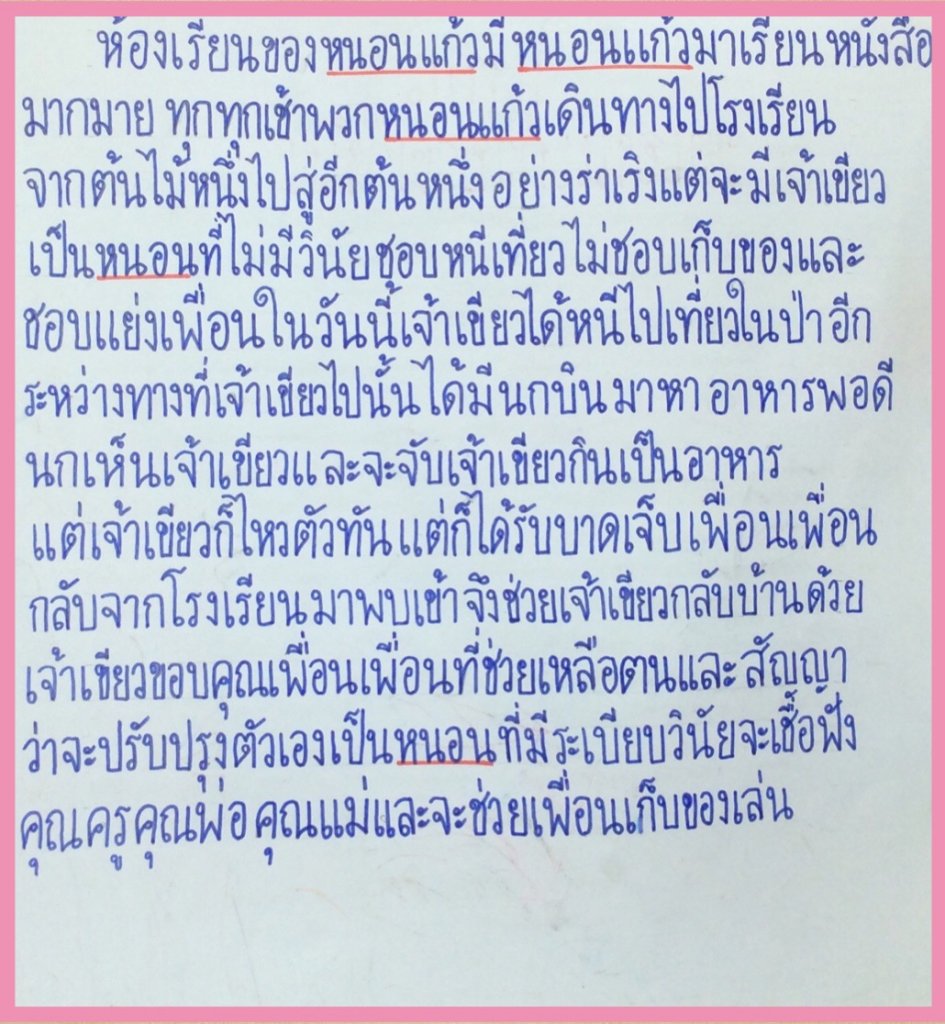 ห้องเรียนของหนอนแก้วมีหนอนแก้วมาเรียนหนังสือ
มากมาย ทุกทุกเช้าพวกหนอนแก้วเดินทางไปโรงเรียน
จากต้นไม้หนึ่งไปสู่อีกต้นหนึ่งอย่างร่าเริงแต่จะมีเจ้าเขียว
เป็นหนอนที่ไม่มีวินัยชอบหนีเที่ยวไม่ชอบเก็บของและ
ชอบแย่งเพื่อนในวันนี้เจ้าเขียวได้หนีไปเที่ยวในป่าอีก
ระหว่างทางที่เจ้าเขียวไปนั้นได้มีนกบินมาหาอาหารพอดี
นกเห็นเจ้าเขียวและจะจับเจ้าเขียวกินเป็นอาหาร
แต่เจ้าเขียวก็ไหวตัวทัน แต่ก็ได้รับบาดเจ็บเพื่อนเพื่อน
กลับจากโรงเรียนมาพบเข้าจึงช่วยเจ้าเขียวกลับบ้านด้วย
เจ้าเขียวขอบคุณเพื่อนเพื่อนที่ช่วยเหลือตนและสัญญา
ว่าจะปรับปรุงตัวเองเป็นหนอนที่มีระเบียบวินัยจะเชื้อฟัง
คุณครูคุณพ่อคุณแม่และจะช่วยเพื่อนเก็บของเล่น